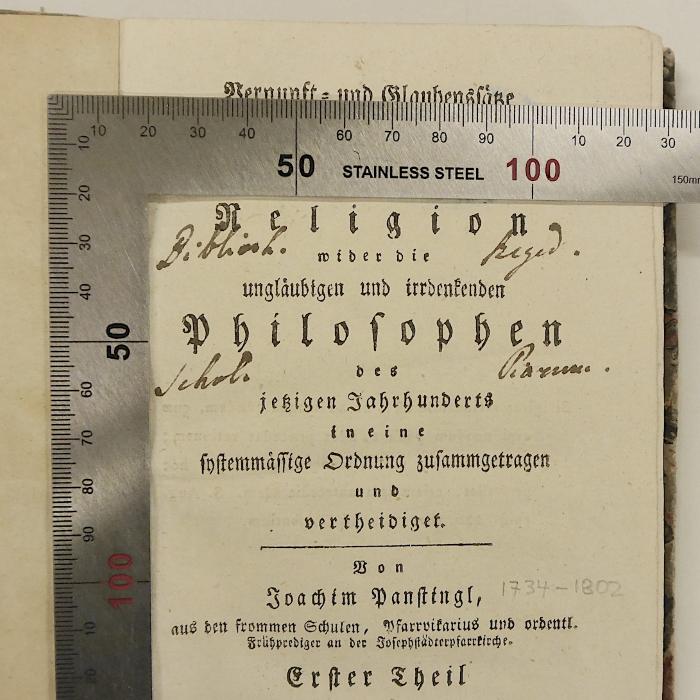 Vernunft= und Glaubenssätze
10 20 30 40 60 70 80 90 10 20 30
50 STAINLESS STEEL 100 150mm
10
20
30
40
50
60
70
80
90
100
10
Religion
Biblioth. wider die Reged.
ungläubigen und irrdenkenden
Philosophen
Schol. des Piarum.
jetzigen Jahrhunderts
in eine
systemmässige Ordnung zusammgetragen
und
vertheidiget.
Von
Joachim Panstingl, 1734-1802
aus den frommen Schulen, Pfarrvikarius und ordentl.
Frühprediger an der Josephstädterpfarrkirche.
Erster Theil